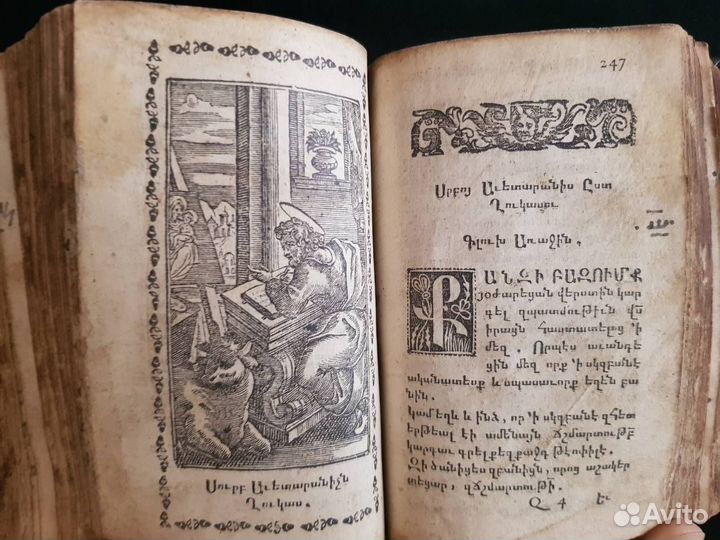 Սուրբ Աւետարանիչն
Ղուկաս.
247
Սրբոյ Աւետարանիս Ըստ
Ղուկասու
Գլուխ Առաջին.
ՔԱՆԶԻ ԲԱԶՈՒՄՔ
յօժարեցան վերստին կար
գել զպատմութիւն վս̃
իրացն հաստատելոց ՚ի
մեզ . Որպէս աւանդե
ցին մեզ որք ՚ի սկզբանէ
ականատեսք և սպասաւորք եղեն բա
նին.
Կամ եղև և ինձ, որ ՚ի սկզբանէ զհետ
երթեալ էի ամենայն ճշմարտութբ̃
կարգաւ գրել քեզ քաջդ թէոփիլէ.
Զի ծանիցես զբանիցն, որոց աշակեր
տեցար, զճշմարտութի̃.
Զ 4 եւ
Avito